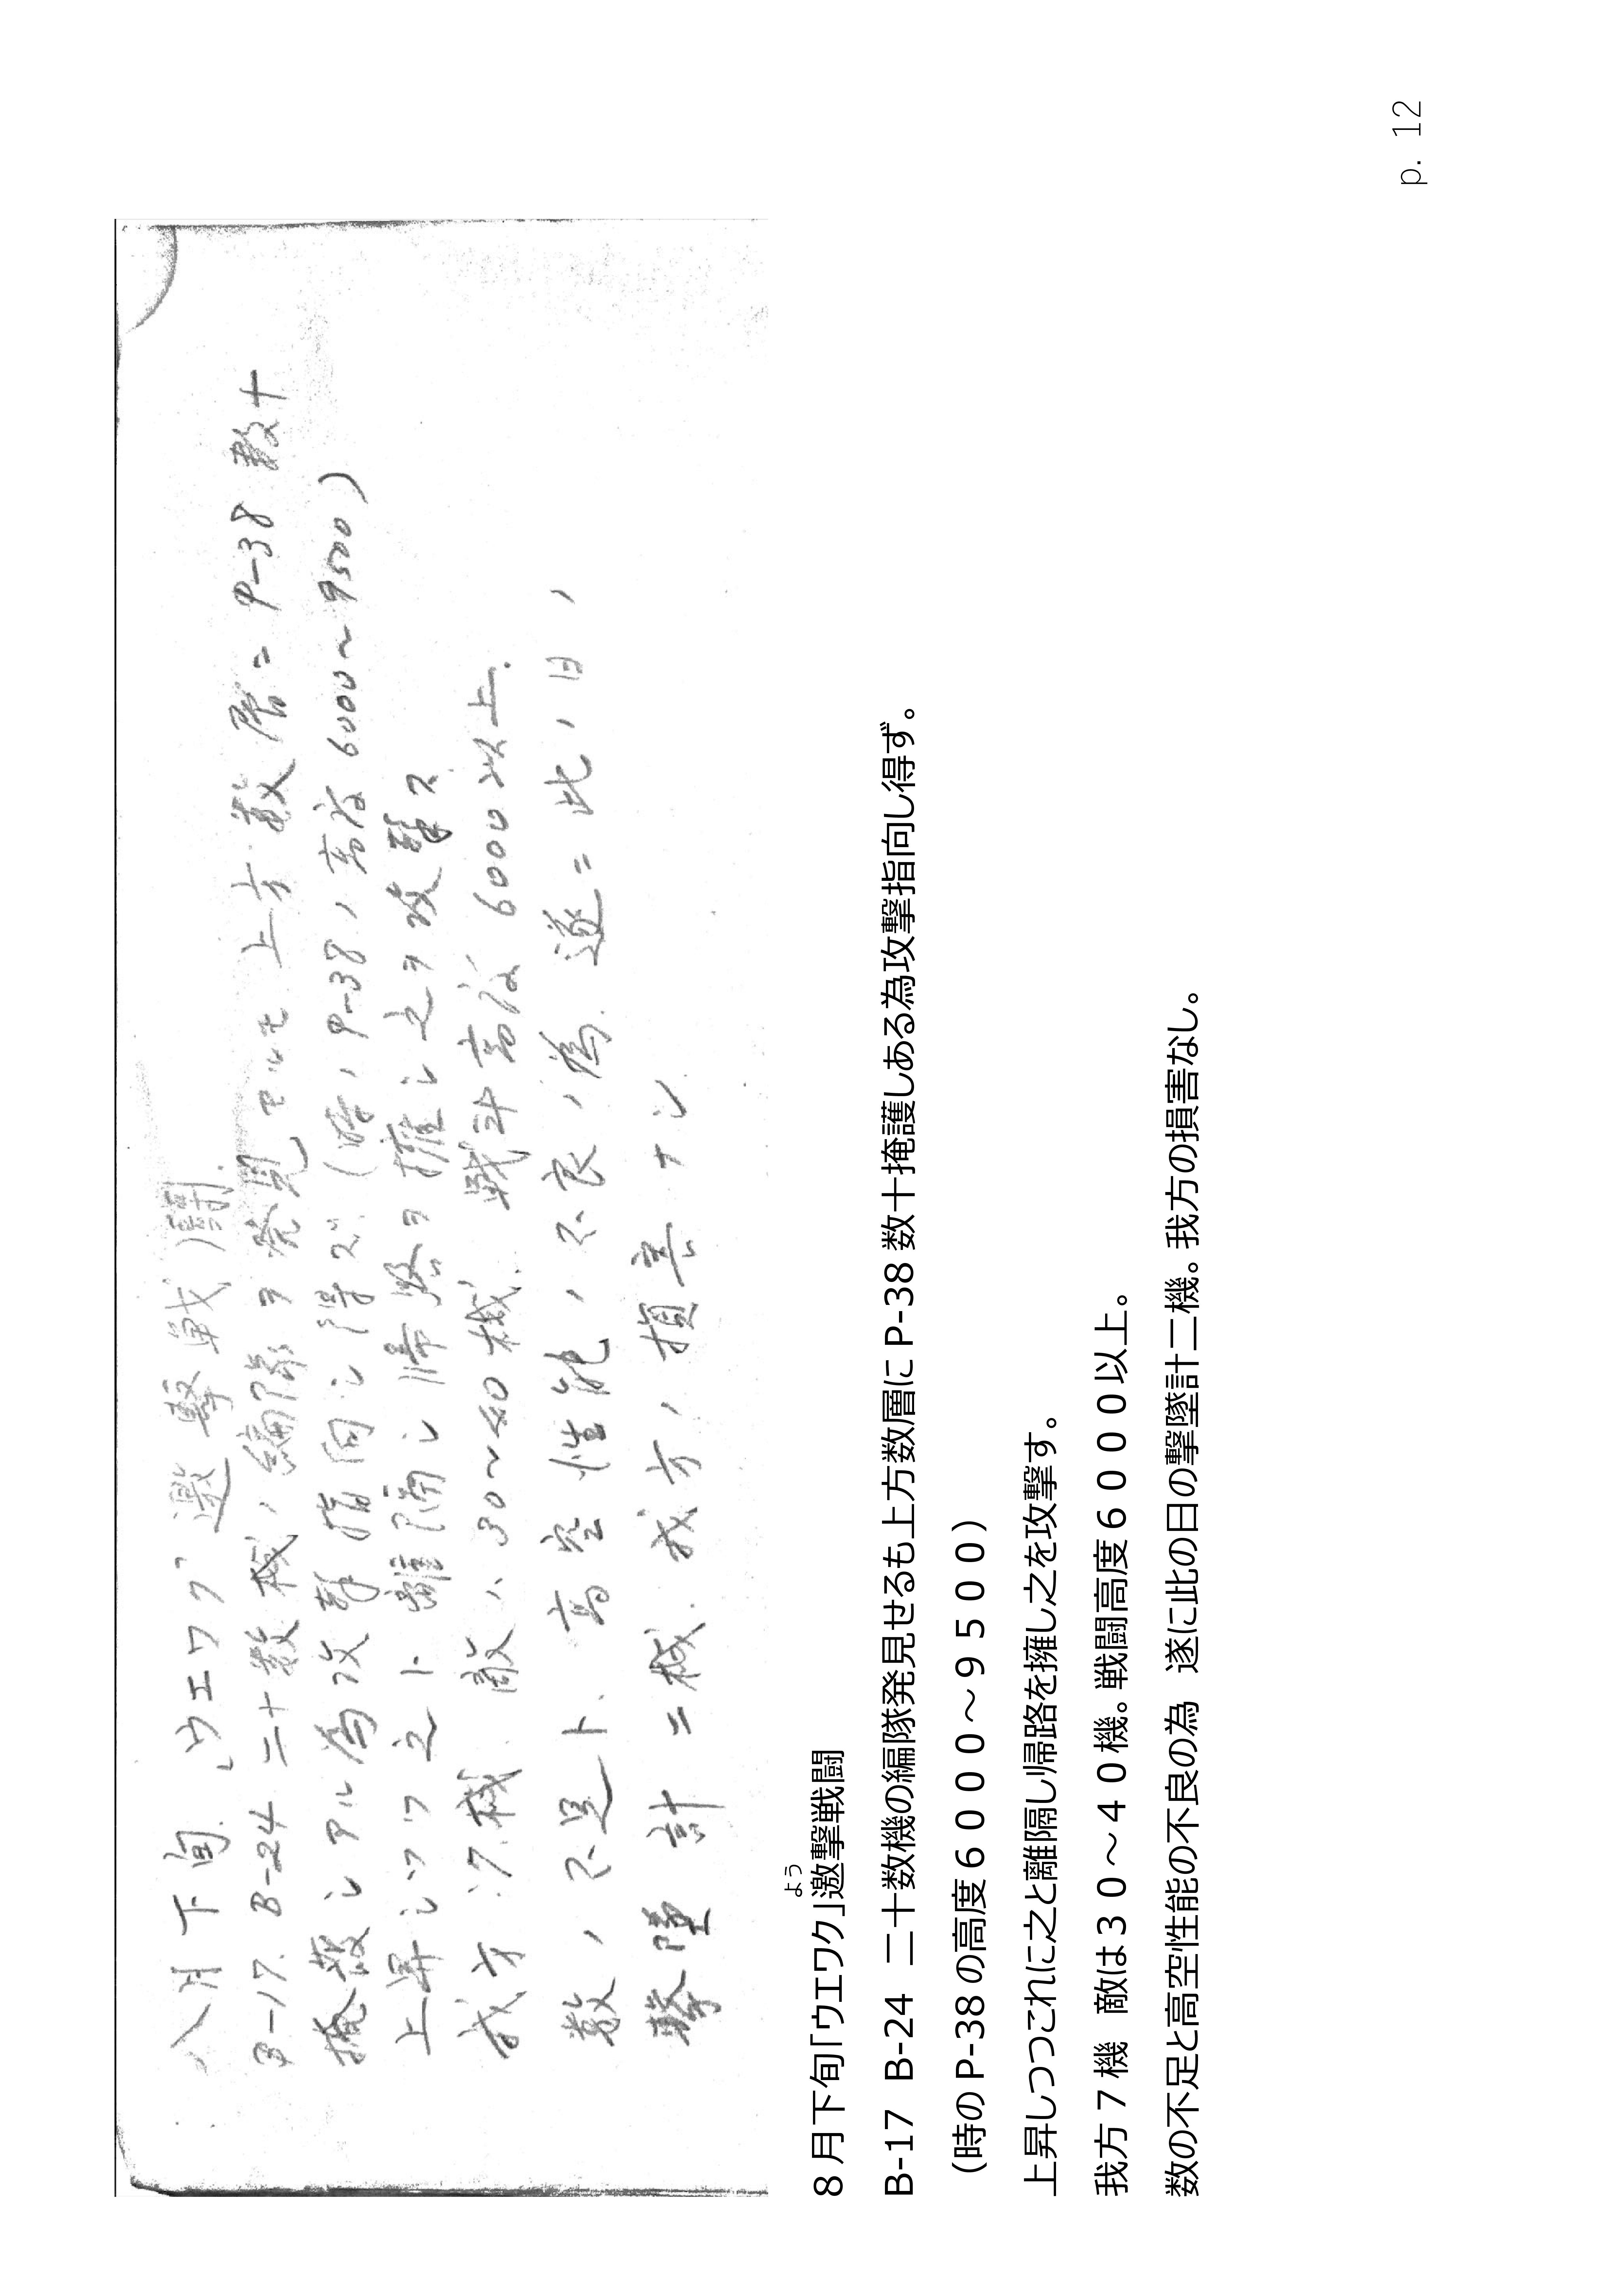 八月下旬「ウエワク」邀撃戦闘.
B-17. B-24 二十数機ノ編隊ヲ発見セルモ上方数層ニ P-38 数十
掩護シアル為攻撃指向シ得ズ(時ノP-38ノ高度6000～9500)
上昇シツツ之ト離隔シ帰路ヲ擁シ之ヲ攻撃ス
我方:7機 敵ハ30～40機. 戦斗高度6000以上.
数ノ不足ト、高空性能ノ不良ノ為. 遂ニ此ノ日ノ
撃墜計二機. 我方ノ損害ナシ
8月下旬「ウエワク」邀撃戦闘
よう
B-17 B-24 二十数機の編隊発見せるも上方数層に P-38 数十掩護しある為攻撃指向し得ず。
(時の P-38 の高度６０００～９５００)
上昇しつつこれに之と離隔し帰路を擁し之を攻撃す。
我方７機 敵は３０～４０機。戦闘高度６０００以上。
数の不足と高空性能の不良の為 遂に此の日の撃墜計二機。我方の損害なし。
p. 12